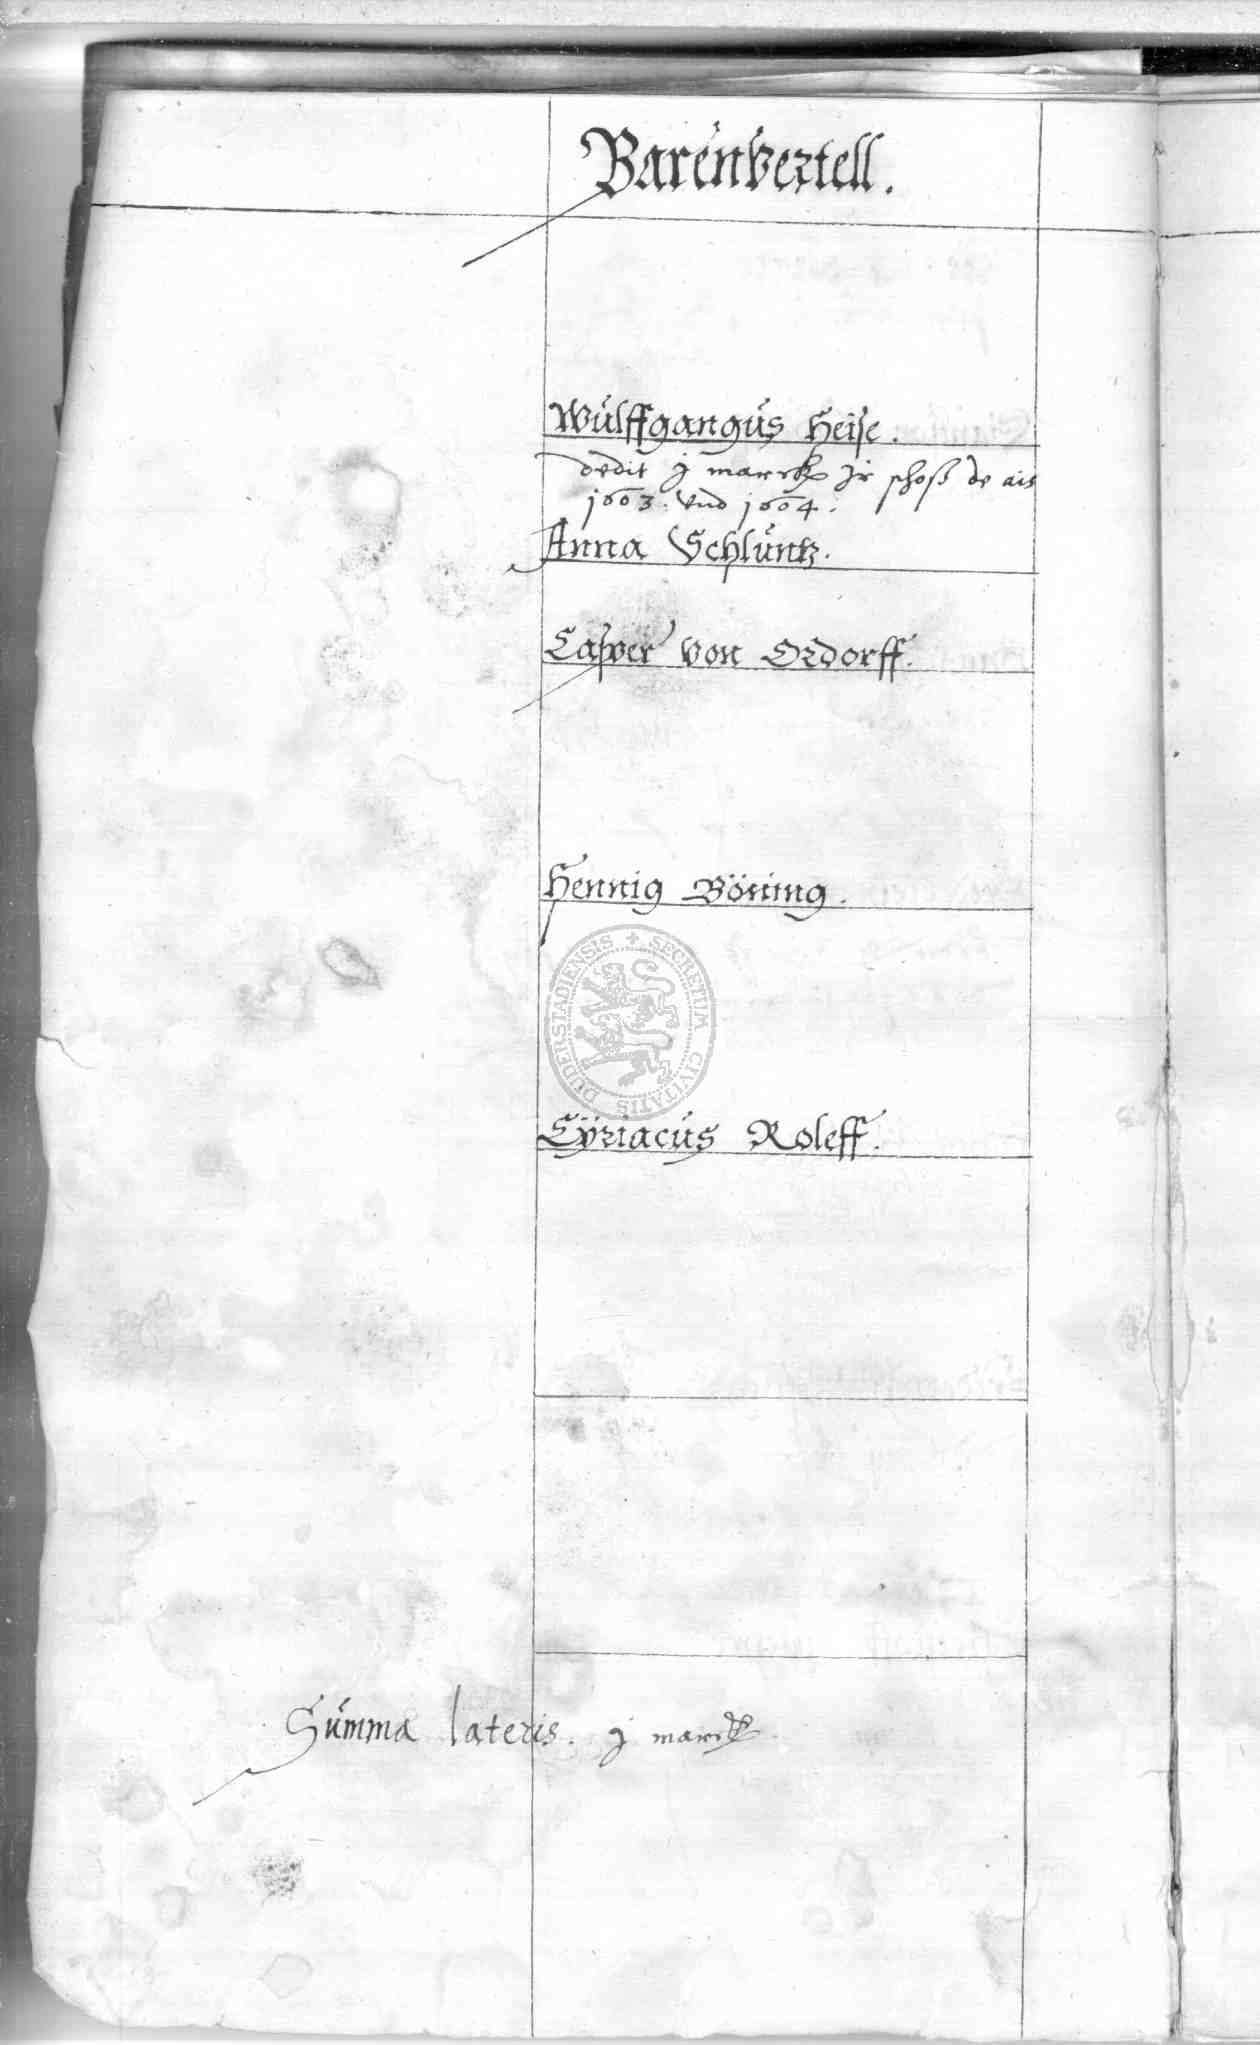 Barenvertell.
Wulffgangus Heise.
dedit j marck Jr schoß de ais
1603. vnd 1604.
Anna Schluntz.
Casper von Ordorff.
Hennig Böning.
DUDERSTADIENSIS + SECRETUM CIVITATIS
Cÿriacus Roleff.
Summa lateris. j marck